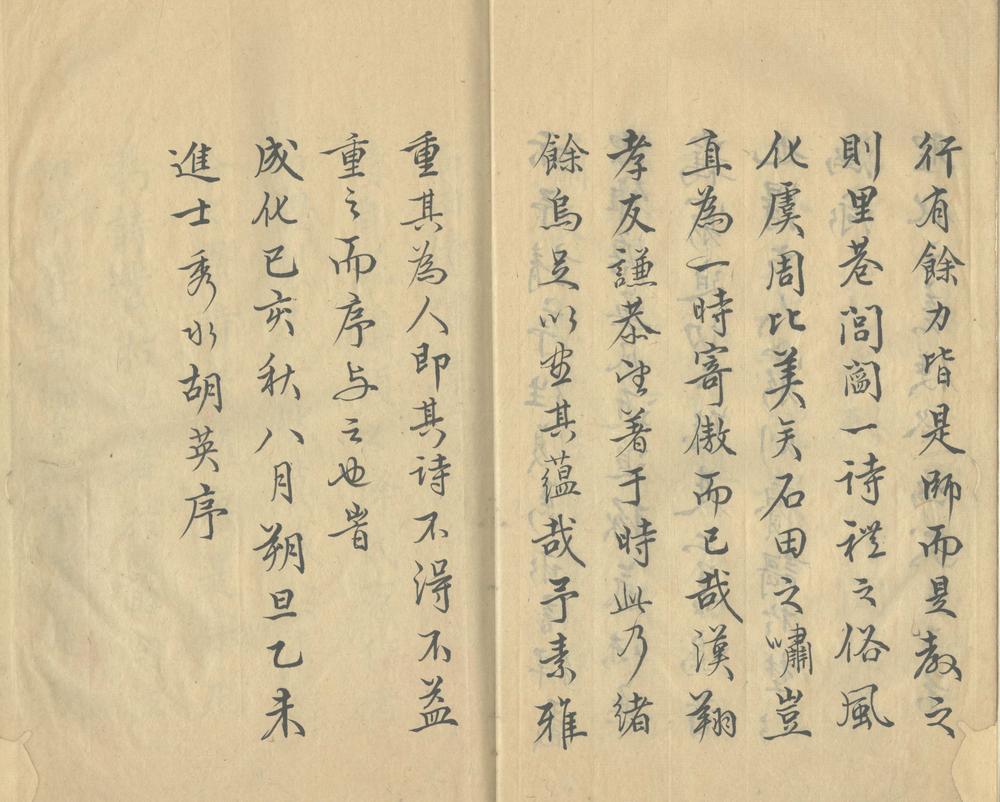 行有餘力皆是師而是教之
則里巷閭閻一詩禮之俗風
化虞周比美矣石田之嘯豈
直為一時寄傲而已哉漢翔
孝友謙恭迬著于時此乃緒
餘烏足以盡其蘊哉予素雅
重其為人即其詩不得不益
重之而序与之也時
成化已亥秋八月朔旦乙未
進士秀水胡英序